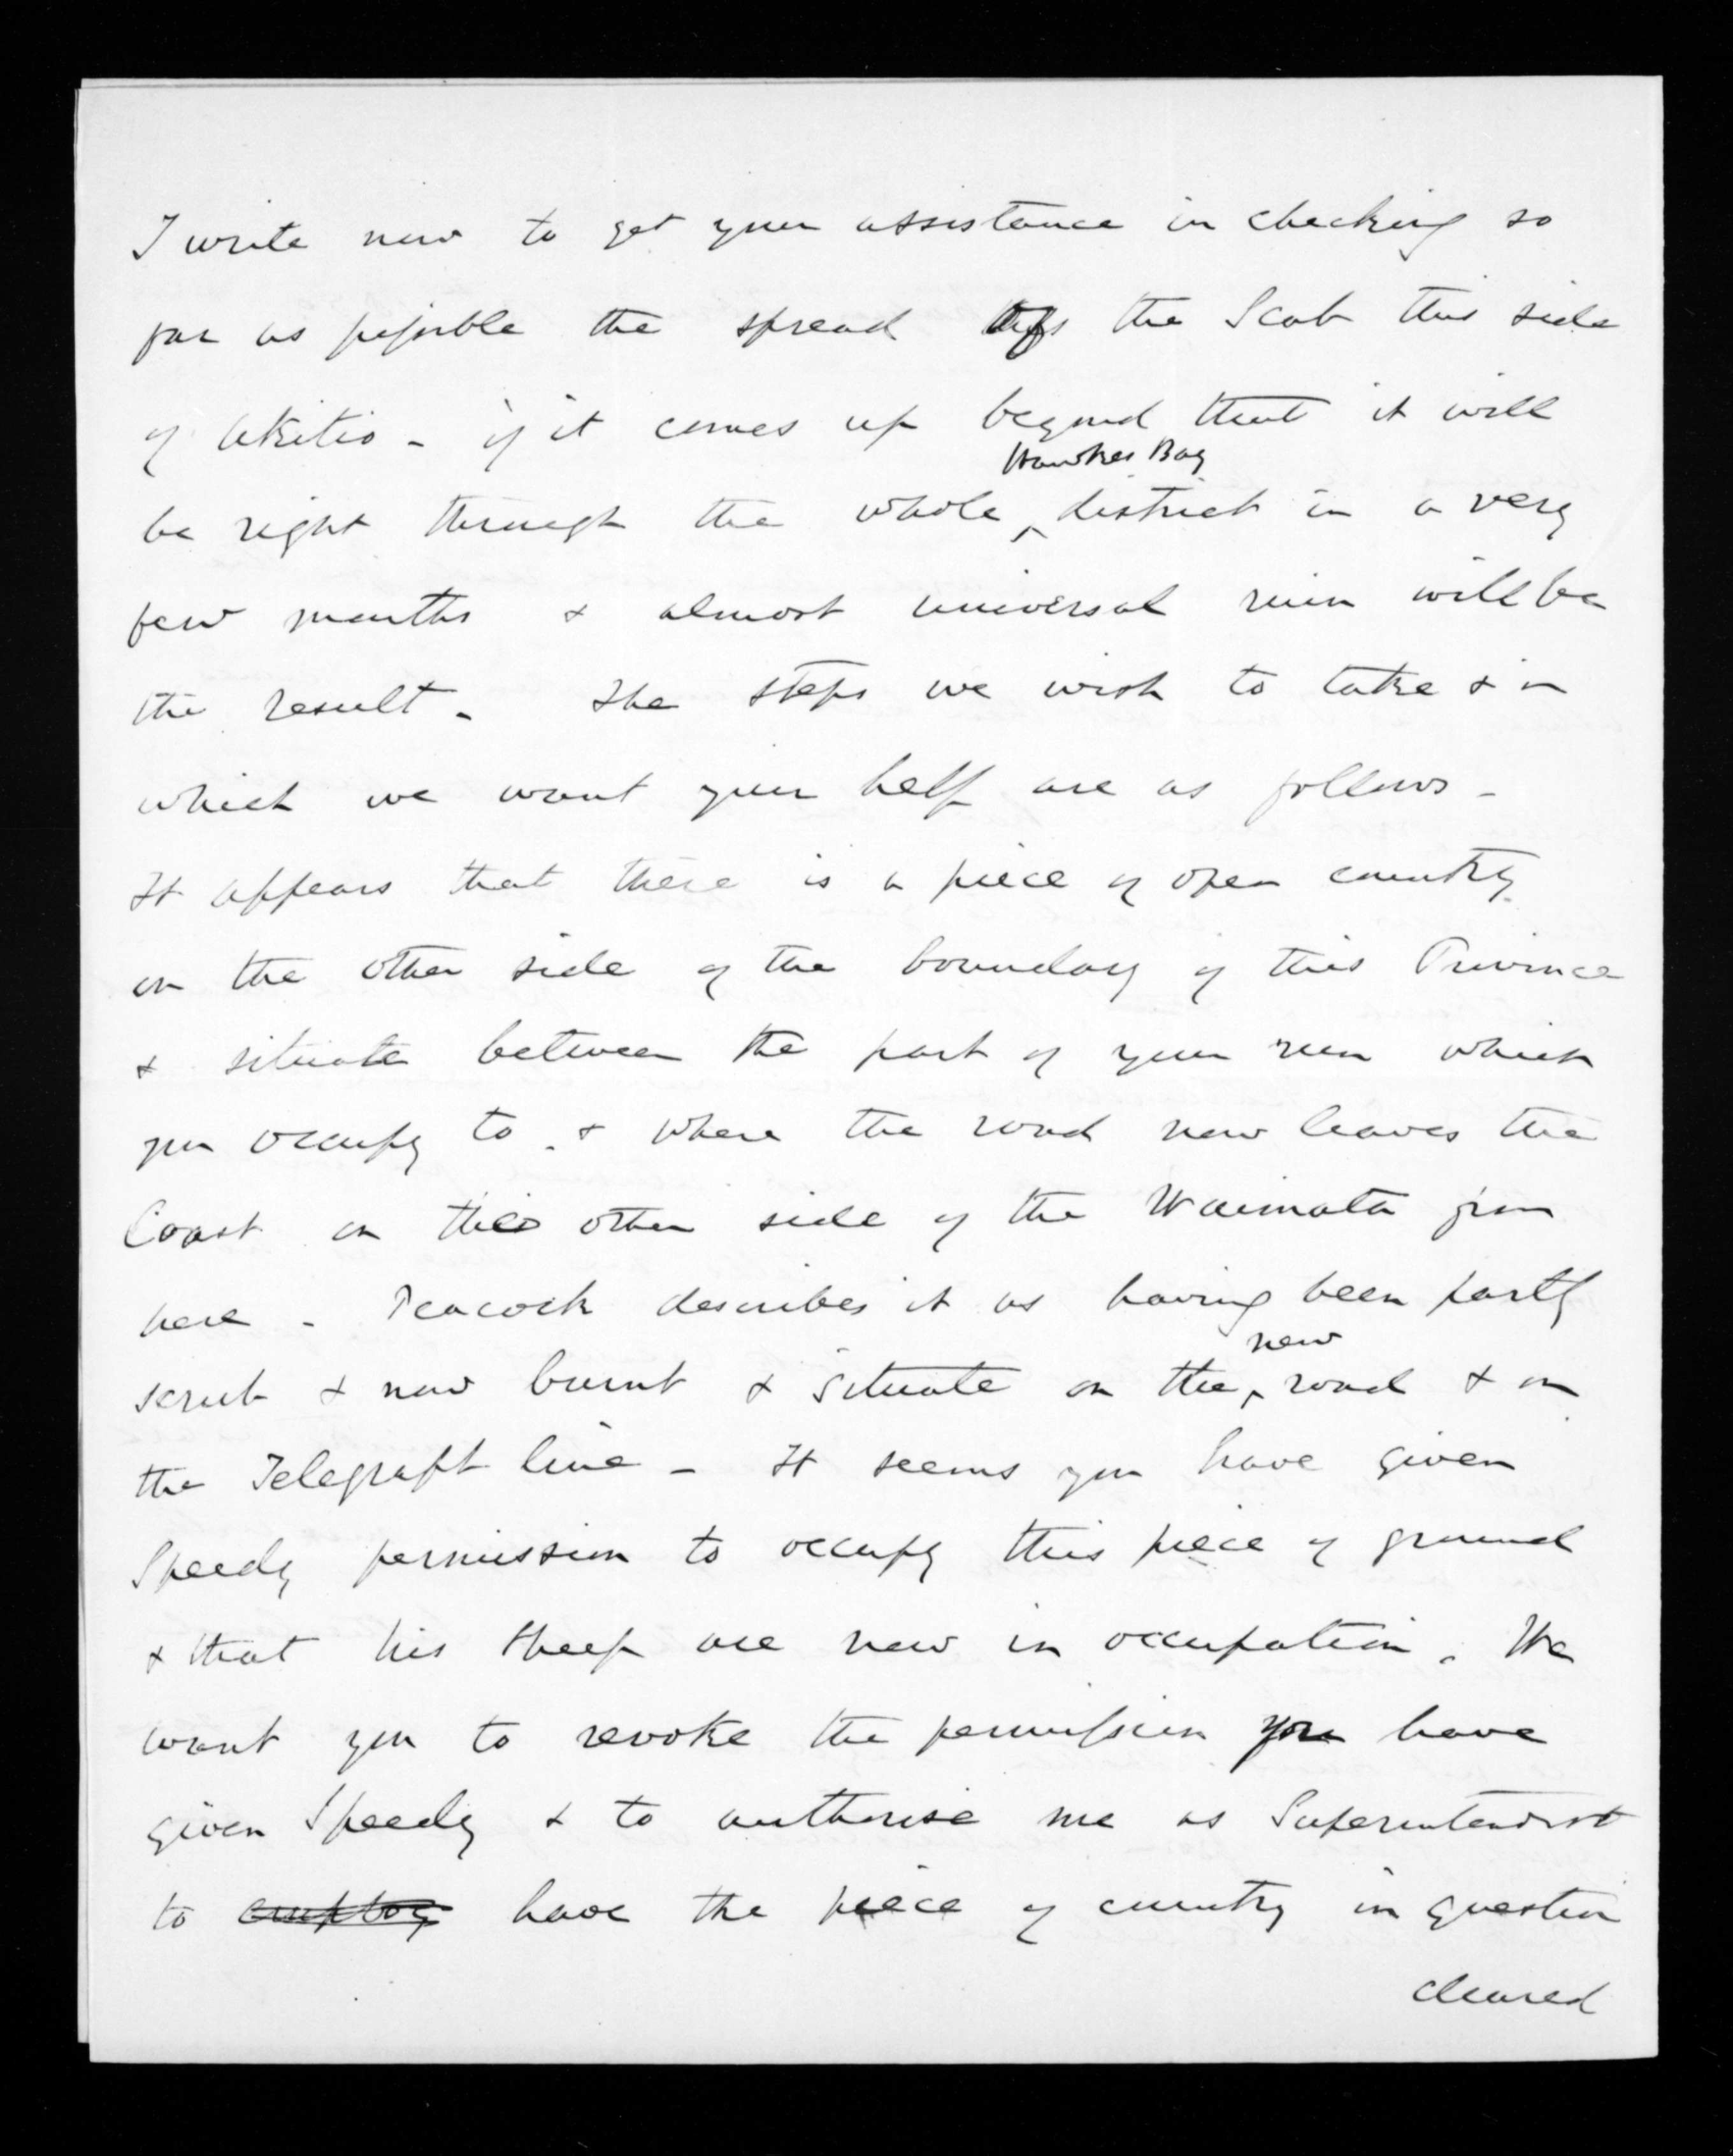 I write now to get your assistance in checking so
far as possible the spread of the Scab this side
of Akitio - if it comes up beyond that it will
Hawkes Bay
be right through the whole ^ district in a very
few months & almost universal ruin will be
the result - The steps we wish to take & in
which we want your help are as follows -
It appears that there is a piece of open country
on the other side of the boundary of this Province
& situate between the part of your run which
you occupy to . & where the road now leaves the
Coast on the other side of the Waimata from
here - Peacock describes it as having been partly
new
scrub & now burnt & situate on the ^ road & on
the Telegraph line - It seems you have given
Speedy permission to occupy this piece of ground
& that his sheep are now in occupation. We
want you to revoke the permission you have
given Speedy & to authorise me as Superintendent
to employ have the piece of country in question
cleared